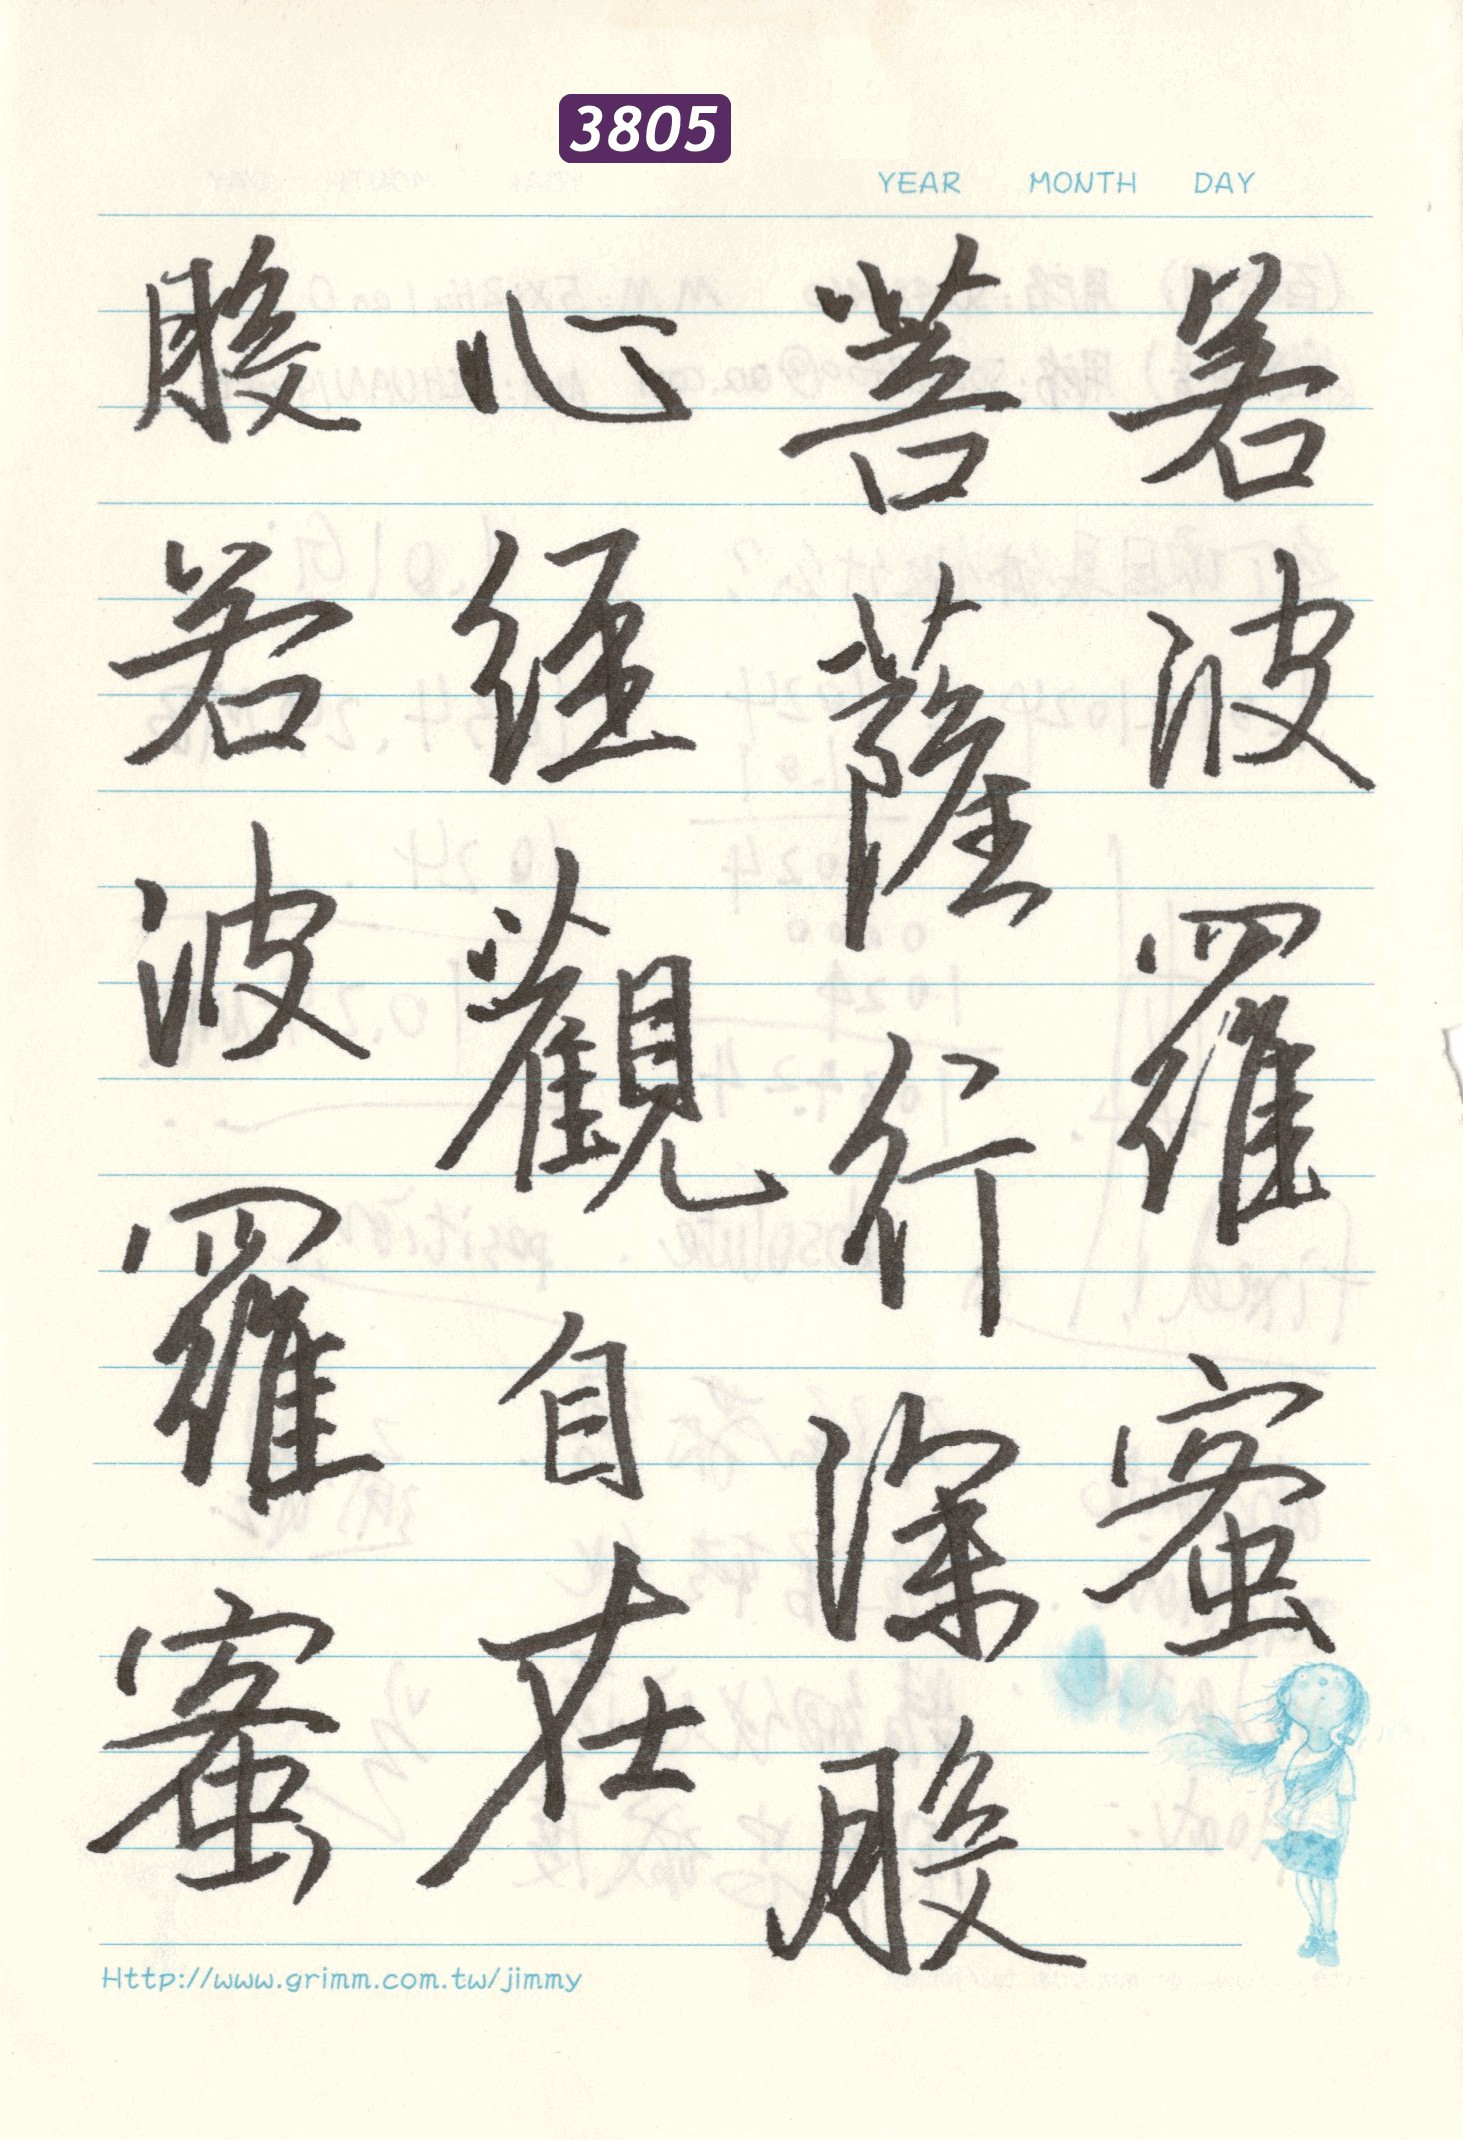 3805
YEAR MONTH DAY
般若波羅蜜
心經觀自在
菩薩行深般
若波羅蜜
Http://www.grimm.com.tw/jimmy